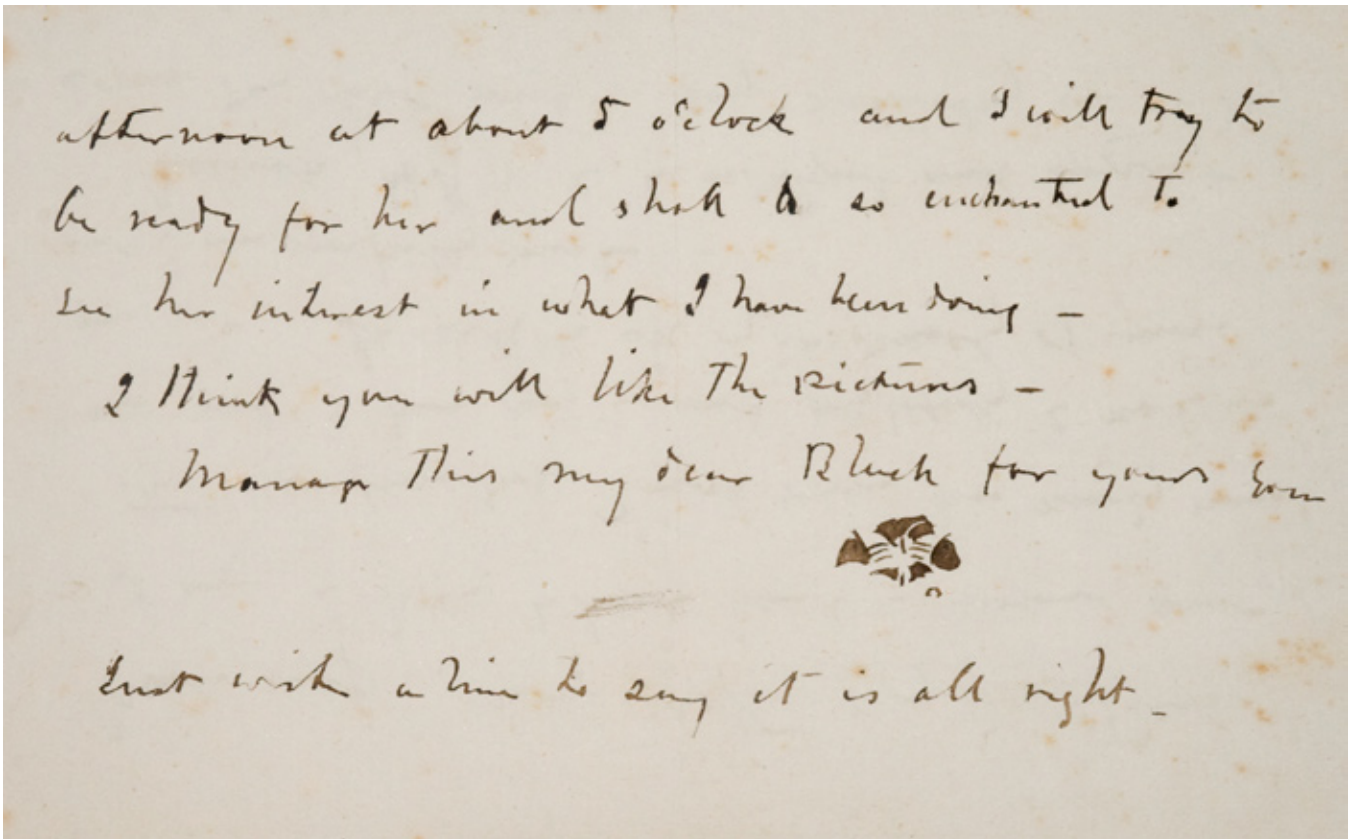 afternoon at about 5 o'clock and I will try to
be ready for her and shall be so enchanted to
see her interest in what I have been doing –
I think you will like the pictures –
Manage this my dear for yours
Just write a line to say it is all right –